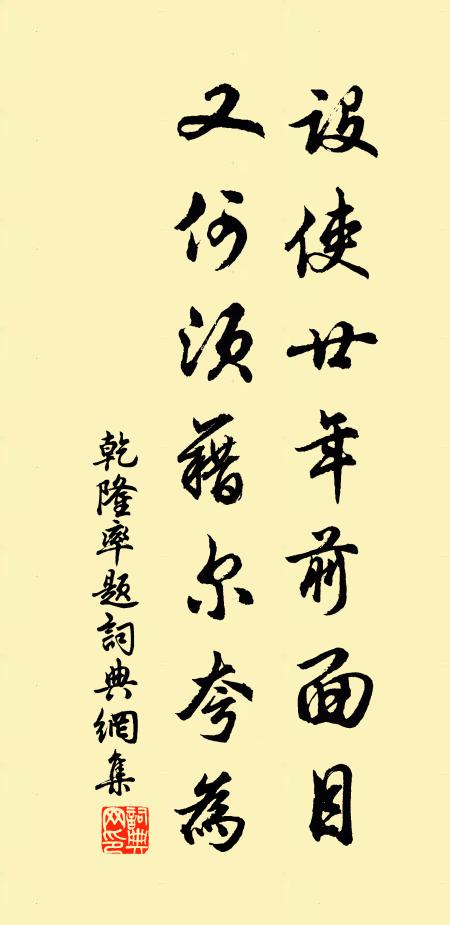 设使廿年前面目
又何须藉尔夸为
乾隆率题詞典網集
詞典网印